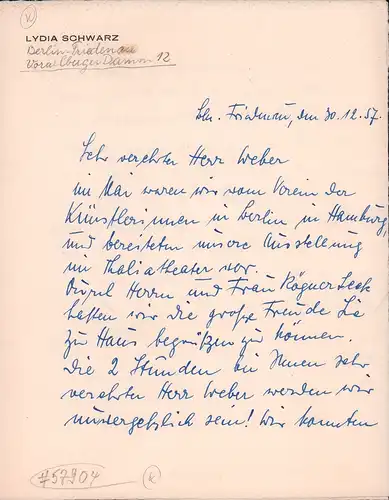 LYDIA SCHWARZ
Berlin-Friedenau
Vorarlberger Damm 12
Bln. Friedenau, den 30.12.57.
Sehr verehrter Herr Weber
im Mai waren wir vom Verein der
Künstlerinnen in Berlin in Hamburg,
und bereiteten unsere Ausstellung
im Thaliatheater vor.
Durch Herrn und Frau
hatten wir die große Freude Sie
zu Haus begrüßen zu können.
Die 2 Stunden bei Ihnen sehr
verehrter Herr Weber werden mir
unvergeßlich sein! Wir konnten
757904